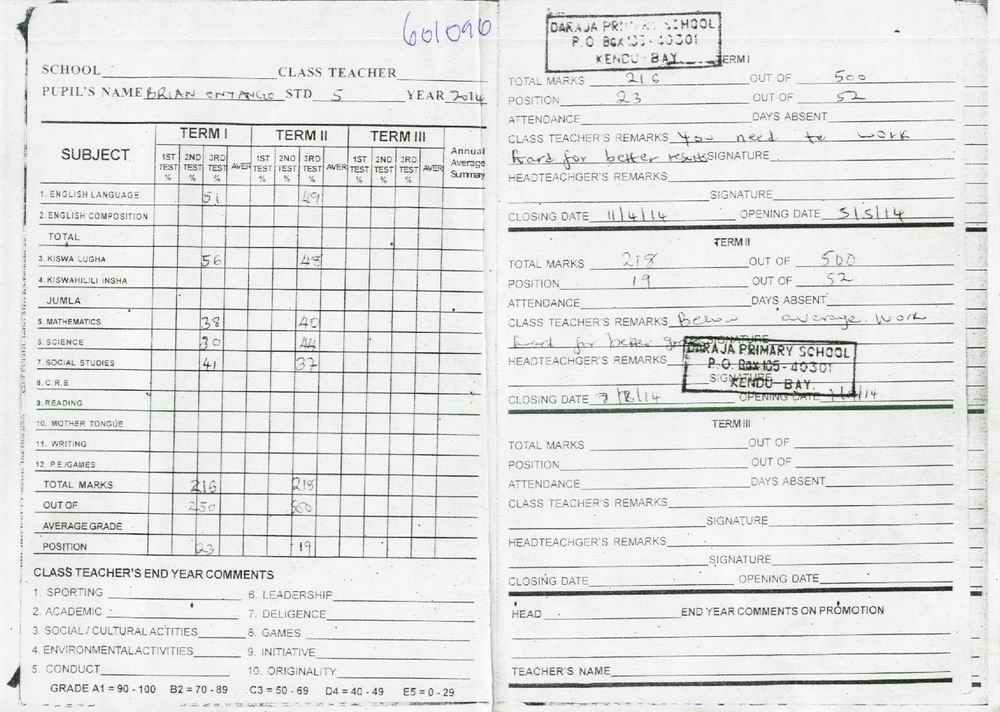 601090
SCHOOL CLASS TEACHER
PUPIL'S NAME BRIAN STD 5 YEAR 2014
SUBJECT TERM I TERM II TERM III Annual Average Summary
1ST TEST % 2ND TEST % 3RD TEST % AVER 1ST TEST % 2ND TEST % 3RD TEST % AVER 1ST TEST % 2ND TEST % 3RD TEST % AVER
1. ENGLISH LANGUAGE 51 49
2. ENGLISH COMPOSITION
TOTAL
3. KISWA LUGHA 56 48
4. KISWAHILILI INSHA
JUMLA
5. MATHEMATICS 38 40
6. SCIENCE 30 44
7. SOCIAL STUDIES 41 37
8. C.R.E
9. READING
10. MOTHER TONGUE
11. WRITING
12. P.E./GAMES
TOTAL MARKS 216 218
OUT OF 500
AVERAGE GRADE
POSITION 23 19
CLASS TEACHER'S END YEAR COMMENTS
1. SPORTING 6. LEADERSHIP
2. ACADEMIC 7. DELIGENCE
3. SOCIAL / CULTURAL ACTITIES 8. GAMES
4. ENVIRONMENTAL ACTIVITIES 9. INITIATIVE
5. CONDUCT 10. ORIGINALITY
GRADE A1 = 90 - 100 B2 = 70 - 89 C3 = 50 - 69 D4 = 40 - 49 E5 = 0 - 29
DARAJA PRIMARY SCHOOL
P.O. BOX 105 - 40301
KENDU - BAY
TERM I
TOTAL MARKS 216 OUT OF 500
POSITION 23 OUT OF 52
ATTENDANCE DAYS ABSENT
CLASS TEACHER'S REMARKS You need to work
hard for better results SIGNATURE
HEADTEACHGER'S REMARKS
SIGNATURE
CLOSING DATE 11/4/14 OPENING DATE 5/5/14
TERM II
TOTAL MARKS 218 OUT OF 500
POSITION 19 OUT OF 52
ATTENDANCE DAYS ABSENT
CLASS TEACHER'S REMARKS Below average. Work
hard for better SIGNATURE
DARAJA PRIMARY SCHOOL
HEADTEACHER'S REMARKS
P.O. Box 105 - 40301
SIGNATURE
KENDU - BAY.
CLOSING DATE /8/14 OPENING DATE
TERM III
TOTAL MARKS OUT OF
POSITION OUT OF
ATTENDANCE DAYS ABSENT
CLASS TEACHER'S REMARKS
SIGNATURE
HEADTEACHGER'S REMARKS
SIGNATURE
CLOSING DATE OPENING DATE
HEAD END YEAR COMMENTS ON PROMOTION
TEACHER'S NAME